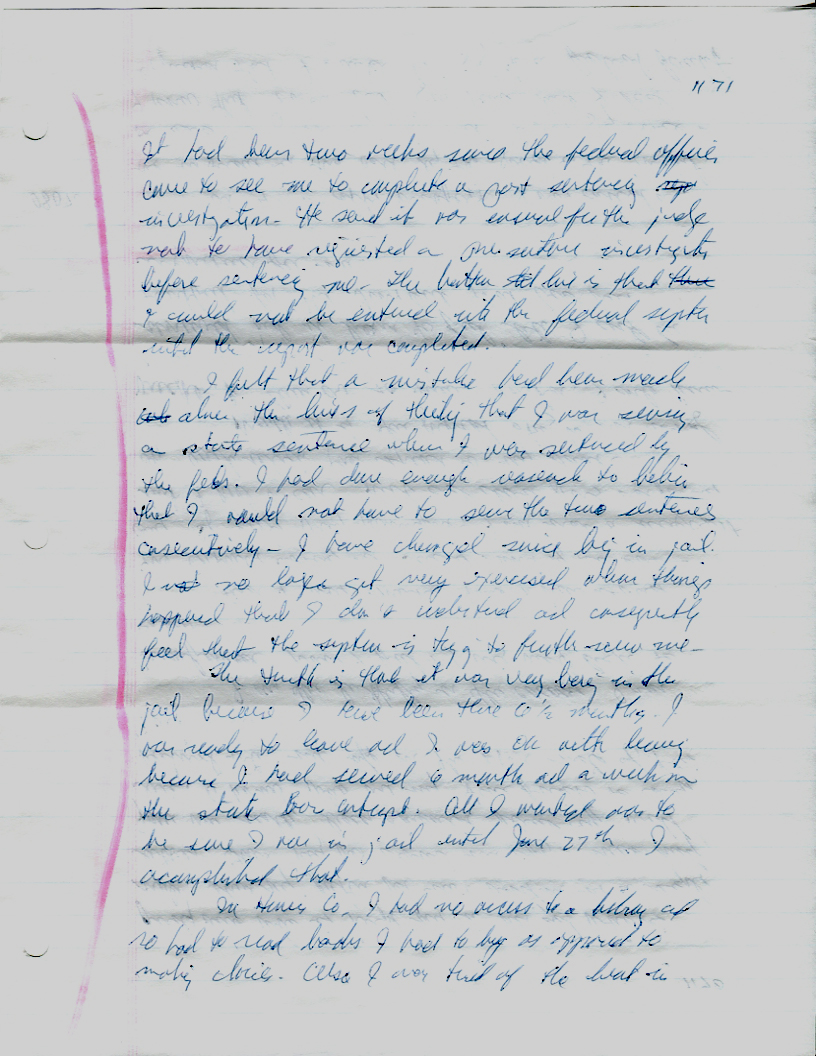 1171
It had been two weeks since the federal officer
came to see me to complete a post sentencing
investigation. He said it was unusual for the judge
not to have requested a pre sentence investigation
before sentencing me. The bottom line is that
I could not be entered into the federal system
until the report was completed.
I felt that a mistake had been made
along the lines of thinking that I was serving
a state sentence when I was sentenced by
the feds. I had done enough research to believe
that I would not have to serve the two sentences
consecutively - I have changed since being in jail.
I no longer get very exercised when things
happened that I don't understand and consequently
feel that the system is trying to further screw me -
The truth is that it was very boring in the
jail because I have been there 6 ½ months. I
was ready to leave and I was ok with leaving
because I had served 6 month and a week on
the state contempt. All I wanted was to
be sure I was in jail until June 27th. I
accomplished that.
In Henry Co. I had no access to a library and
so had to read books I had to buy as opposed to
making choices. Also I was tired of the heat in